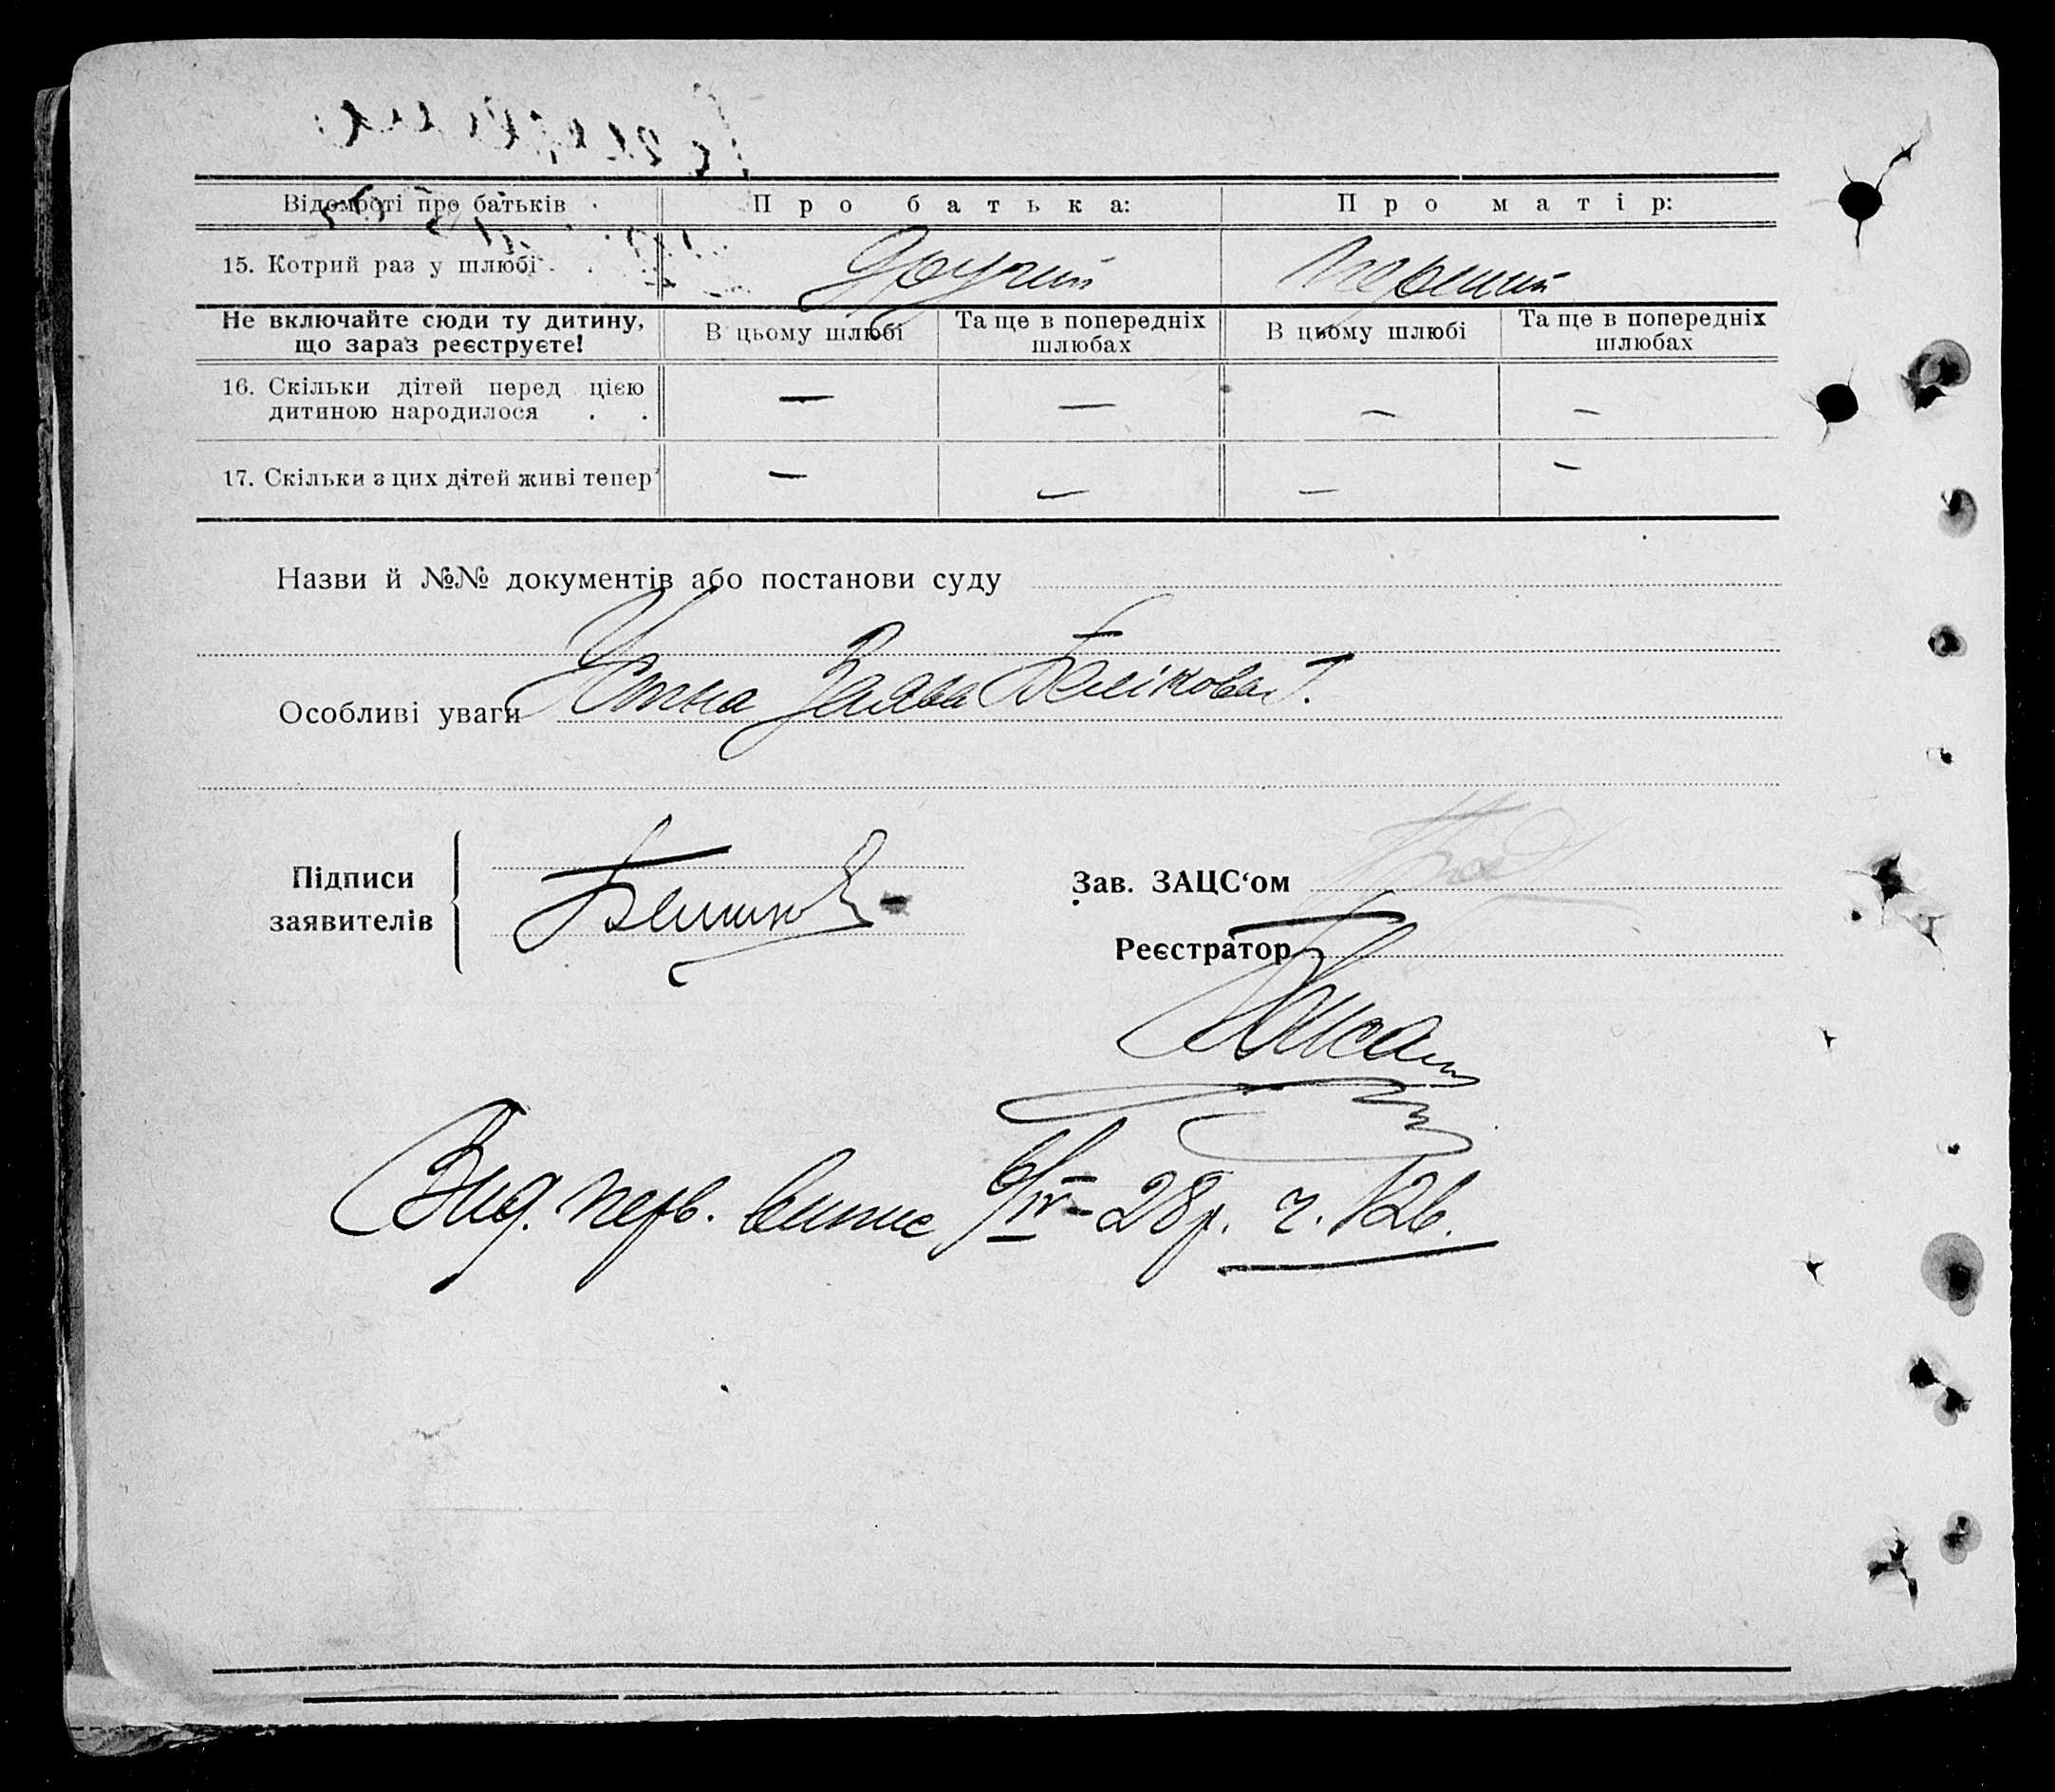 Відомості про батьків Про батька: Про матір:
15. Котрий раз у шлюбі . . Другий Перший
Не включайте сюди ту дитину, що зараз реєструєте! В цьому шлюбі Та ще в попередніх шлюбах В цьому шлюбі Та ще в попередніх шлюбах
16. Скільки дітей перед цією
дитиною народилося . . — — — —
17. Скільки з цих дітей живі тепер — — — —
Назви й №№ документів або постанови суду
Устна Заява Белікова Г.
Особливі уваги
Підписи
заявителів
Зав. ЗАЦС‘ом
Реєстратор
Вид. перв. випис 6/IV-28р. ч. 126.